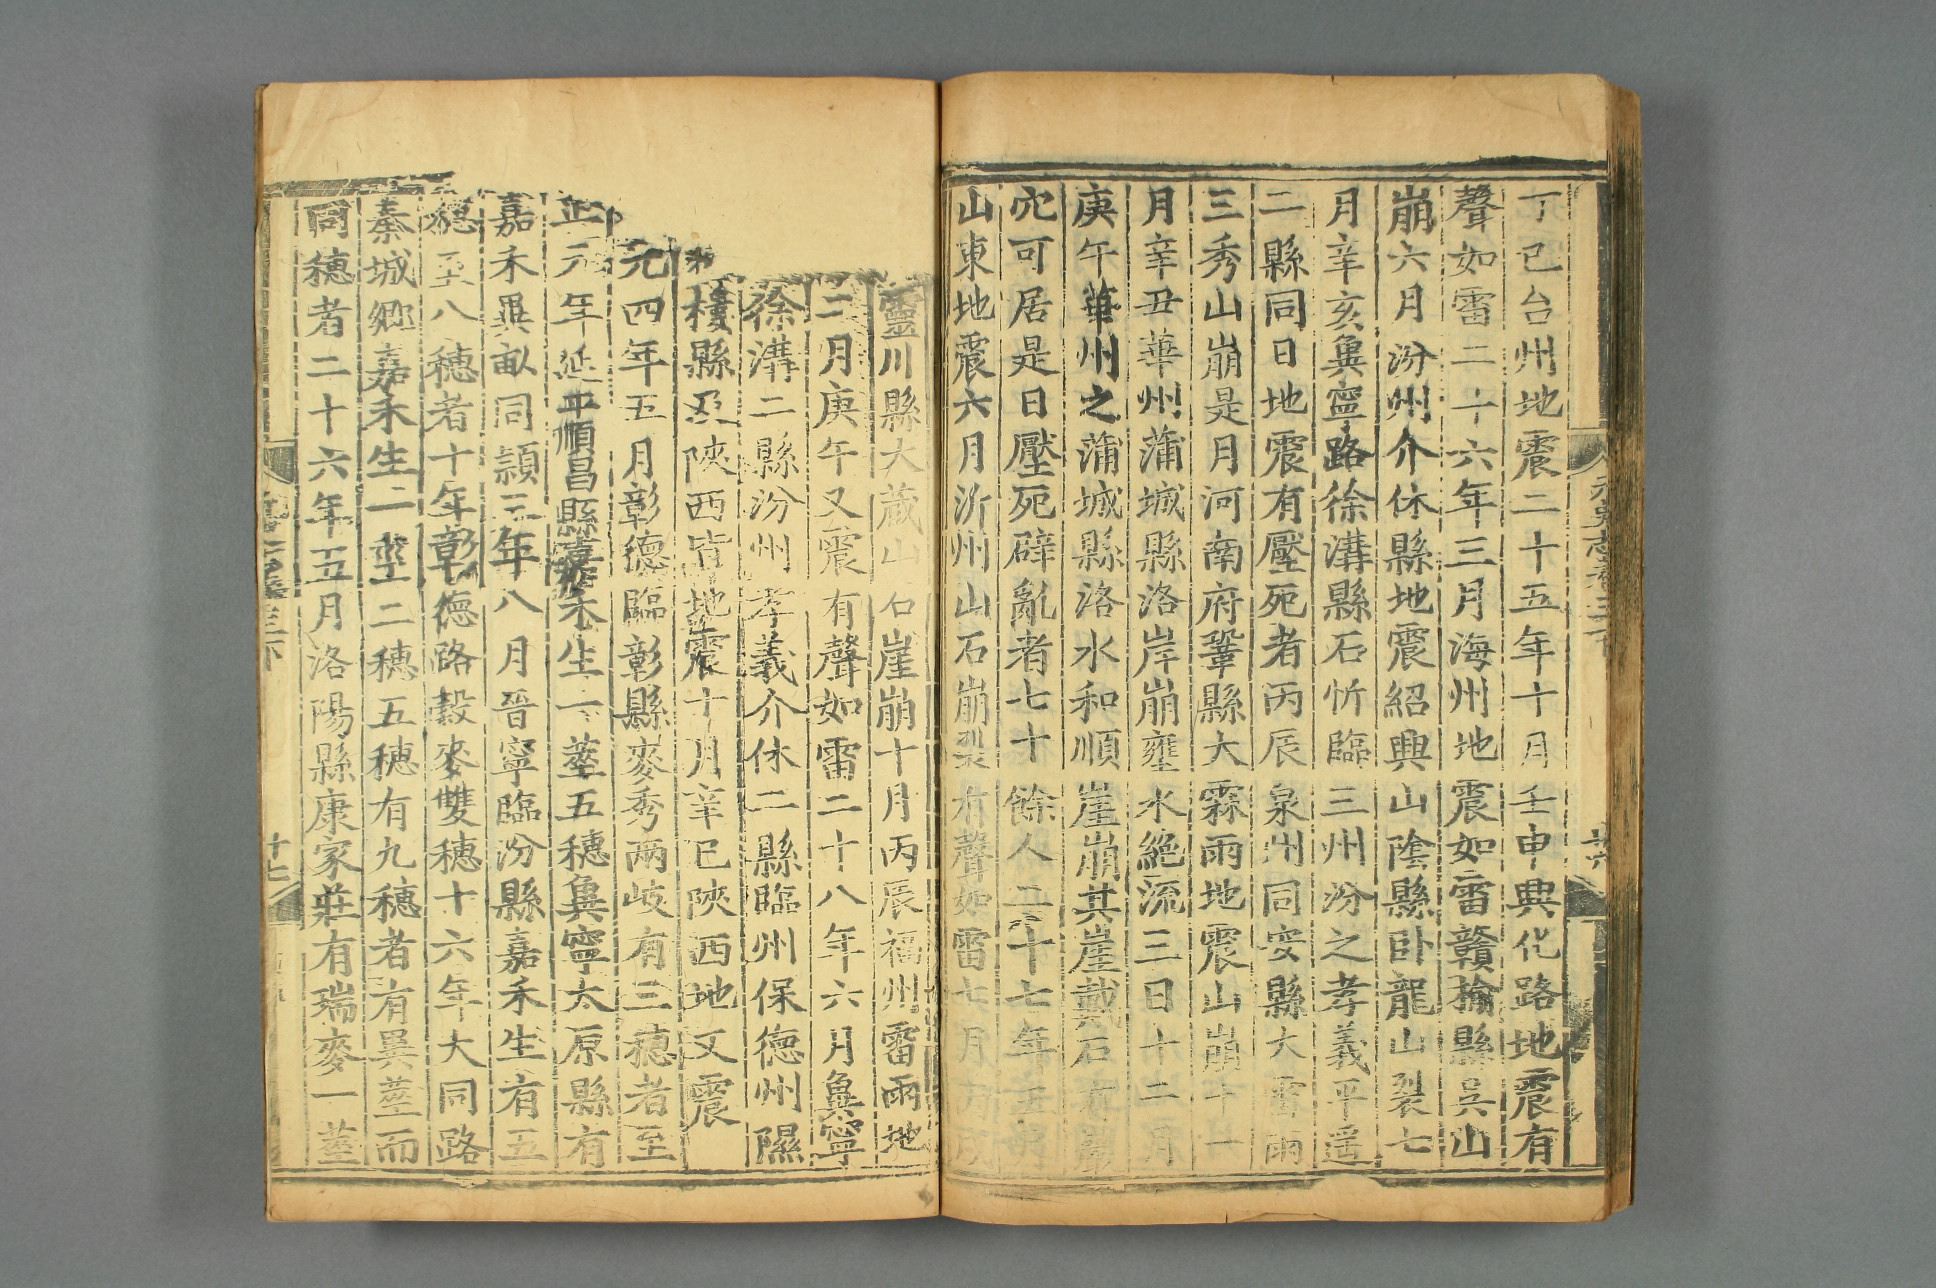 丁巳台州地震二十五年十月壬申興化路地震有
聲如雷二十六年三月海州地震如雷贛榆縣吳山
崩六月汾州介休縣地震紹興山陰縣卧龍山裂七
月辛亥兾寧路徐溝縣石忻臨三州汾之孝義平遥
二縣同日地震有壓死者丙辰泉州同安縣大雷雨
三秀山崩是月河南府鞏縣大霖雨地震山崩十一
月辛丑華州蒲城縣洛岸崩壅水絶流三日十二月
庚午華州之蒲城縣洛水和順崖崩其崖戴石有巖
穴可居是日壓死辟亂者七十餘人二十七年五月
山東地震六月沂州山石崩裂有聲如雷七月丙戌
靈川縣大藏山石崖崩十月丙辰福州雷雨地
二月庚午又震有聲如雷二十八年六月兾寧
徐溝二縣汾州孝義介休二縣臨州保德州隰
樓縣及陝西皆地震十月辛巳陝西地又震
元四年五月彰德臨彰縣麥秀兩岐有三穗者至
正元年延平順昌縣嘉禾生一莖五穗兾寧太原縣有
嘉禾異畝同頴三年八月晉寧臨汾縣嘉禾生有五
穗至八穗者十年彰德路穀麥雙穗十六年大同路
秦城鄉嘉禾生一莖二穗五穗有九穗者有異莖而
同穗者二十六年五月洛陽縣康家莊有瑞麥一莖
十七